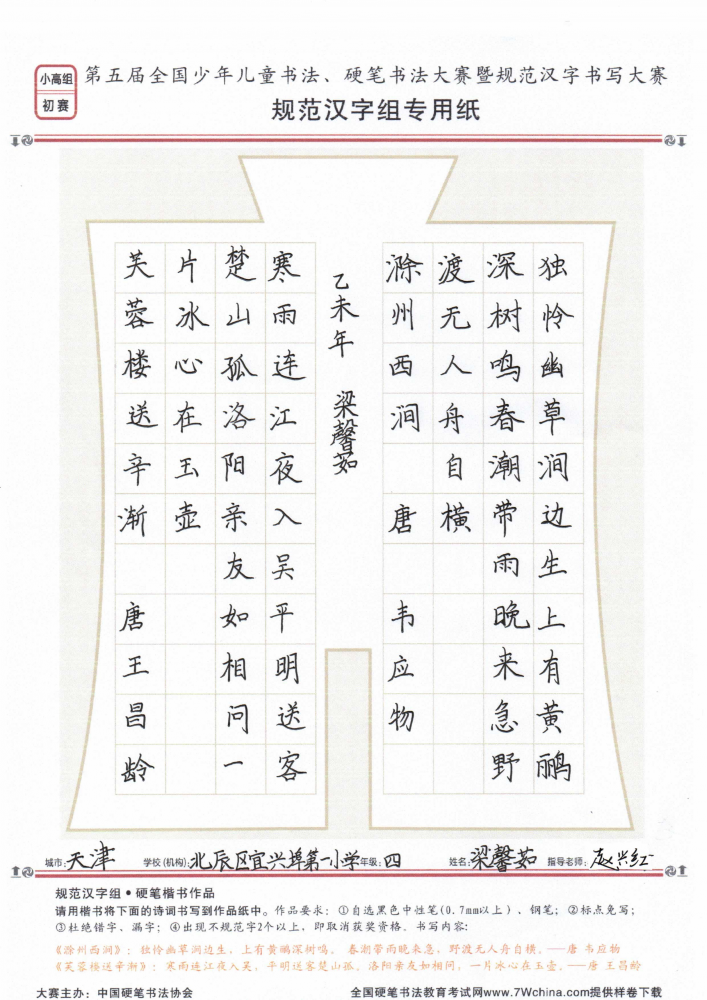 小高组
初赛
第五届全国少年儿童书法、硬笔书法大赛暨规范汉字书写大赛
规范汉字组专用纸
独怜幽草涧边生上有黄鹂
深树鸣春潮带雨晚来急野
渡无人舟自横
滁州西涧 唐 韦应物
乙未年 梁馨茹
寒雨连江夜入吴平明送客
楚山孤洛阳亲友如相问一
片冰心在玉壶
芙蓉楼送辛渐 唐王昌龄
城市:天津 学校(机构):北辰区宜兴埠第一小学 年级:四 姓名:梁馨茹 指导老师:赵兴红
规范汉字组•硬笔楷书作品
请用楷书将下面的诗词书写到作品纸中。作品要求：①自选黑色中性笔(0.7mm以上)、钢笔；②标点免写；
③杜绝错字、漏字；④出现不规范字2个以上，即取消获奖资格。书写内容:
《滁州西涧》：独怜幽草涧边生，上有黄鹂深树鸣。 春潮带雨晚来急，野渡无人舟自横。——唐 韦应物
《芙蓉楼送辛渐》：寒雨连江夜入吴，平明送客楚山孤。洛阳亲友如相问，一片冰心在玉壶。——唐 王昌龄
大赛主办：中国硬笔书法协会 全国硬笔书法教育考试网www.7Wchina.com提供样卷下载